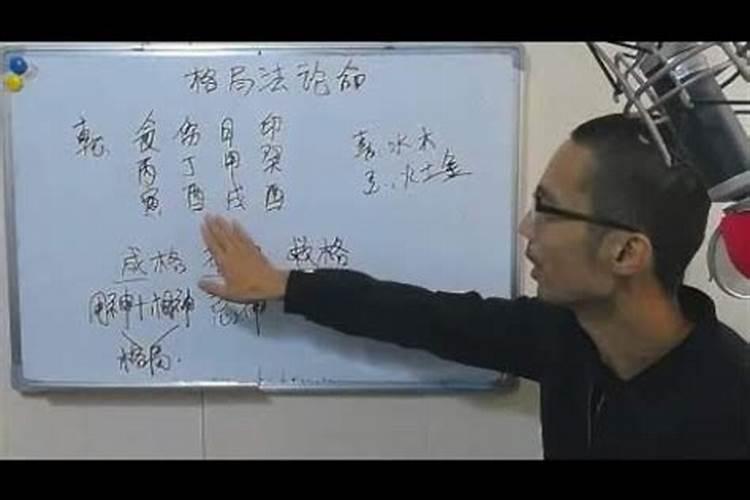 格局法论命
乾 食 伤 日 印
丙 丁 甲 癸
寅 酉 戌 酉
喜:水木
忌:火土金
成格 救格
用神+相神 忌神
格局.